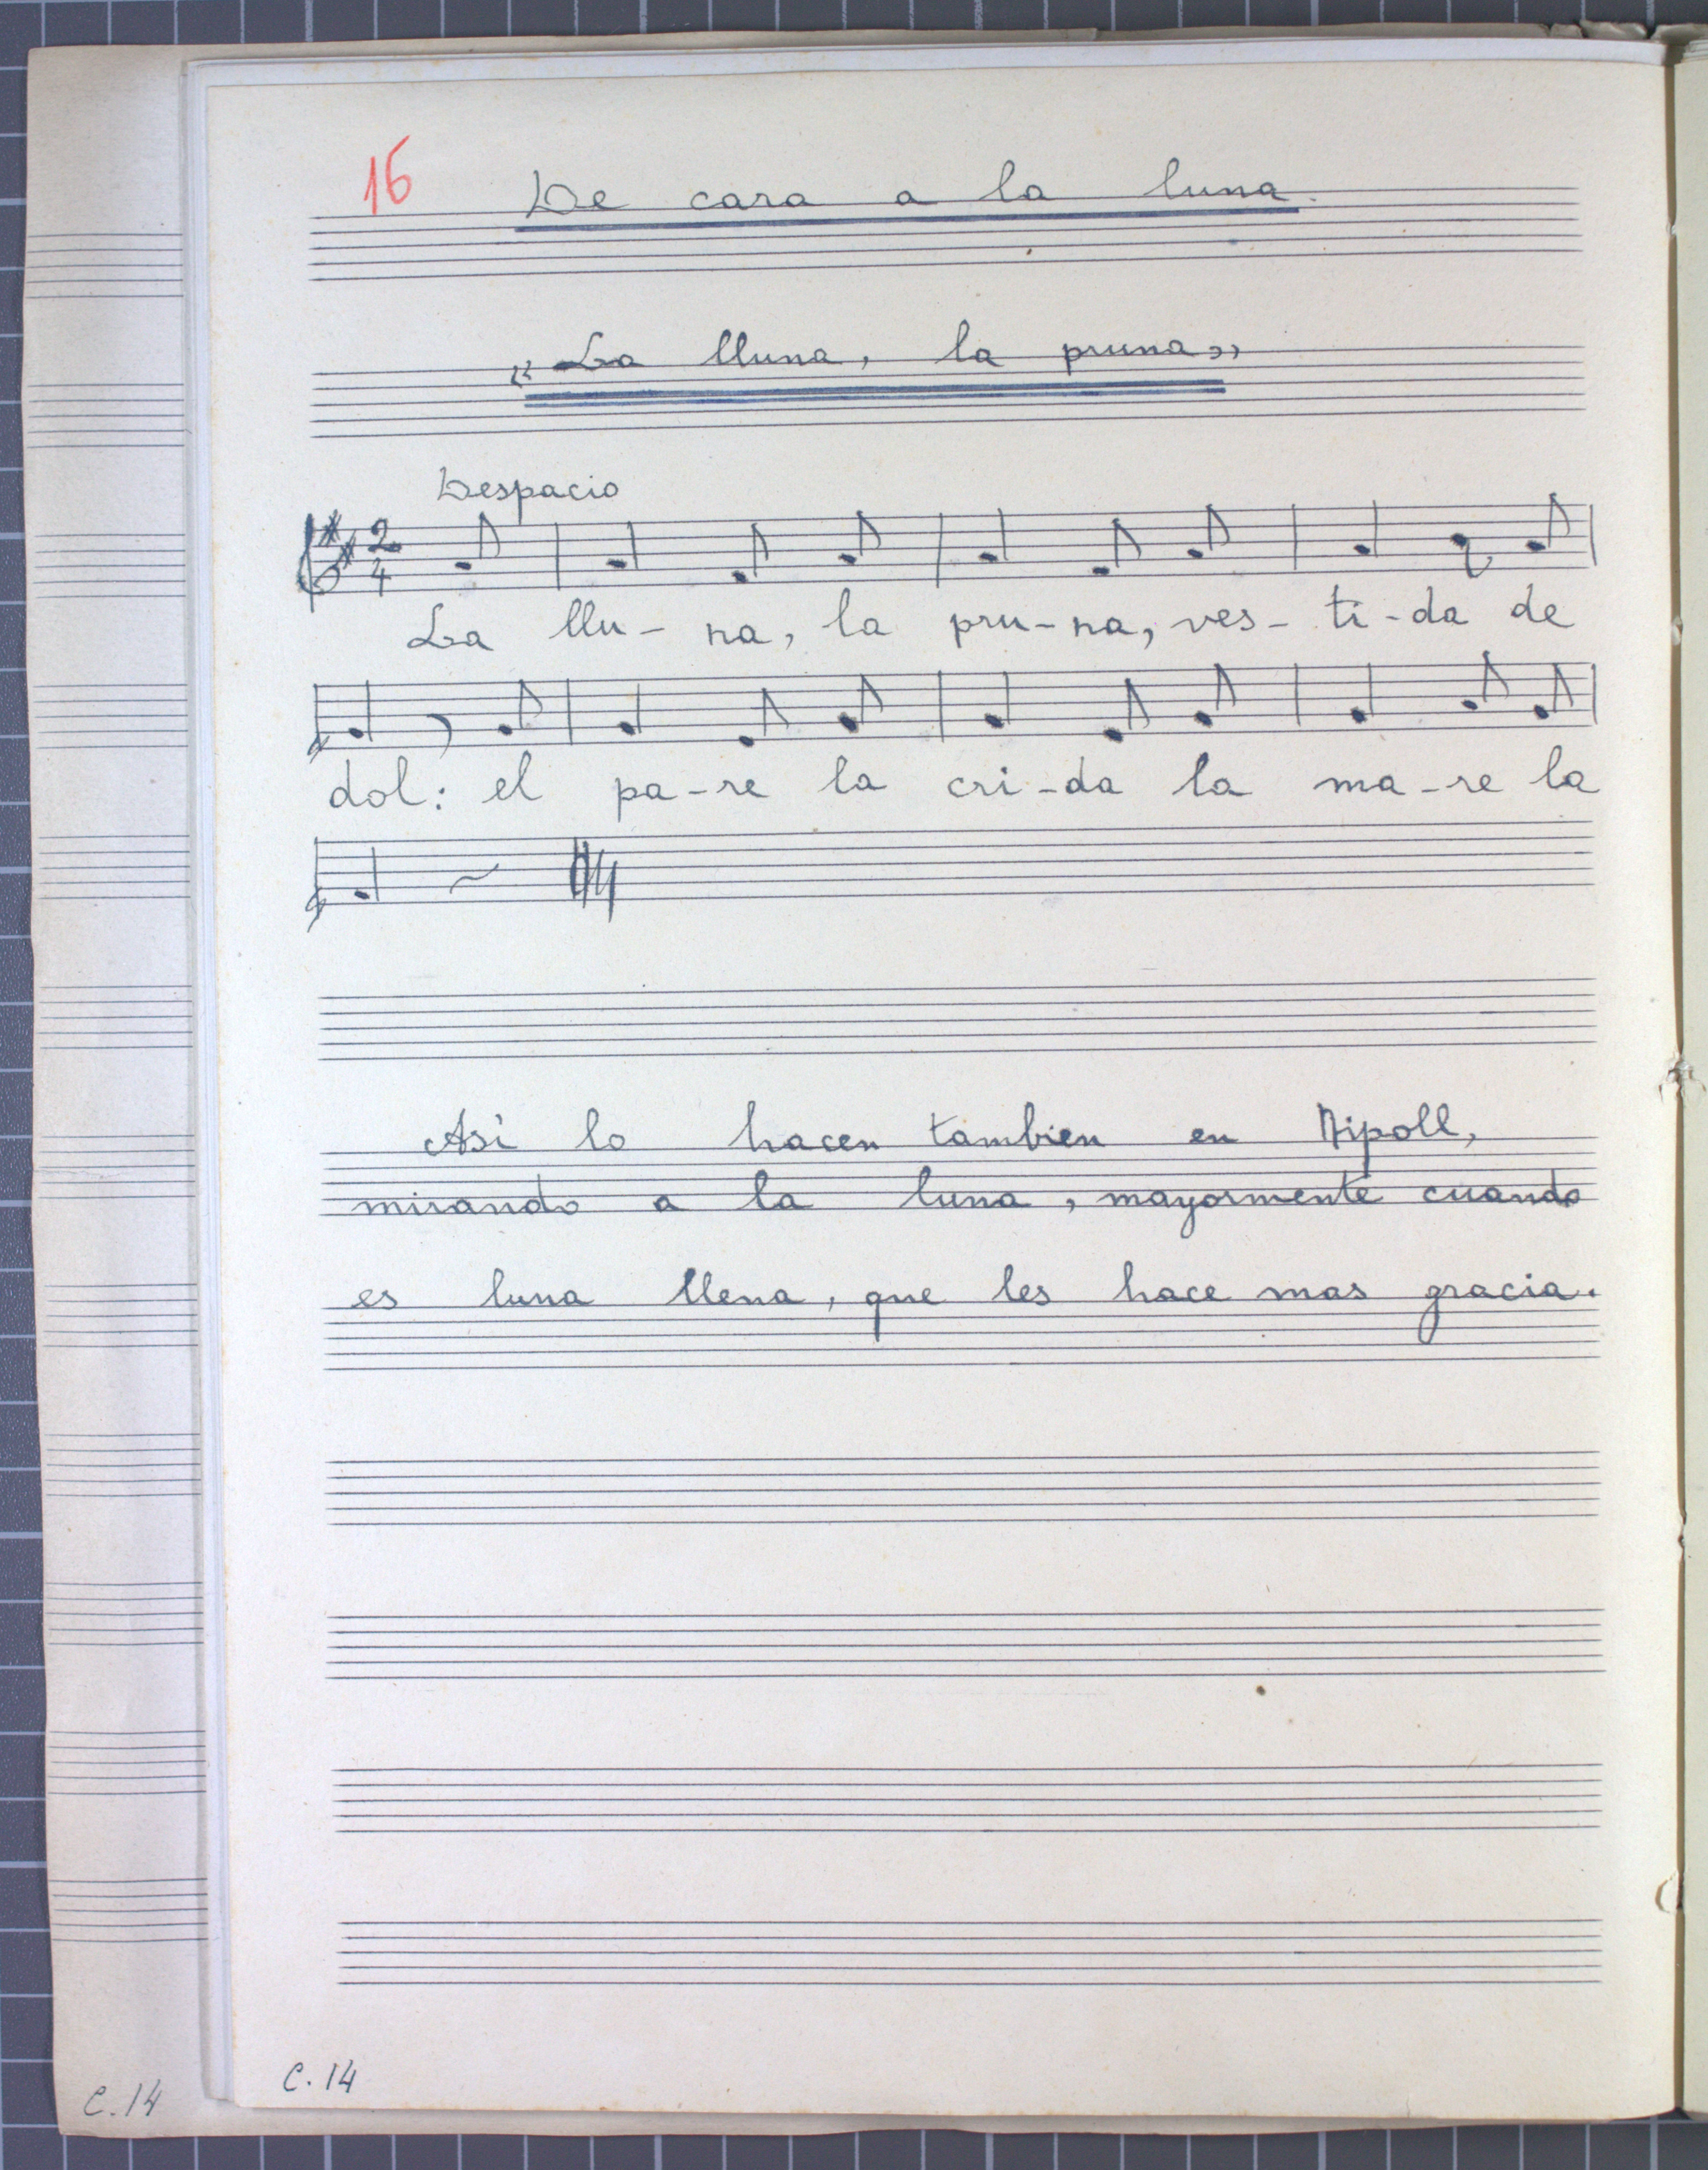 16 De cara a la luna.
"La lluna, la pruna"
Despacio
2
4
La llu- na, la pru-na, ves- ti-da de
dol: el pa-re la cri-da la ma-re la
Asi lo hacen tambien en Ripoll,
mirando a la luna, mayormente cuando
es luna llena, que les hace mas gracia.
C. 14
C. 14